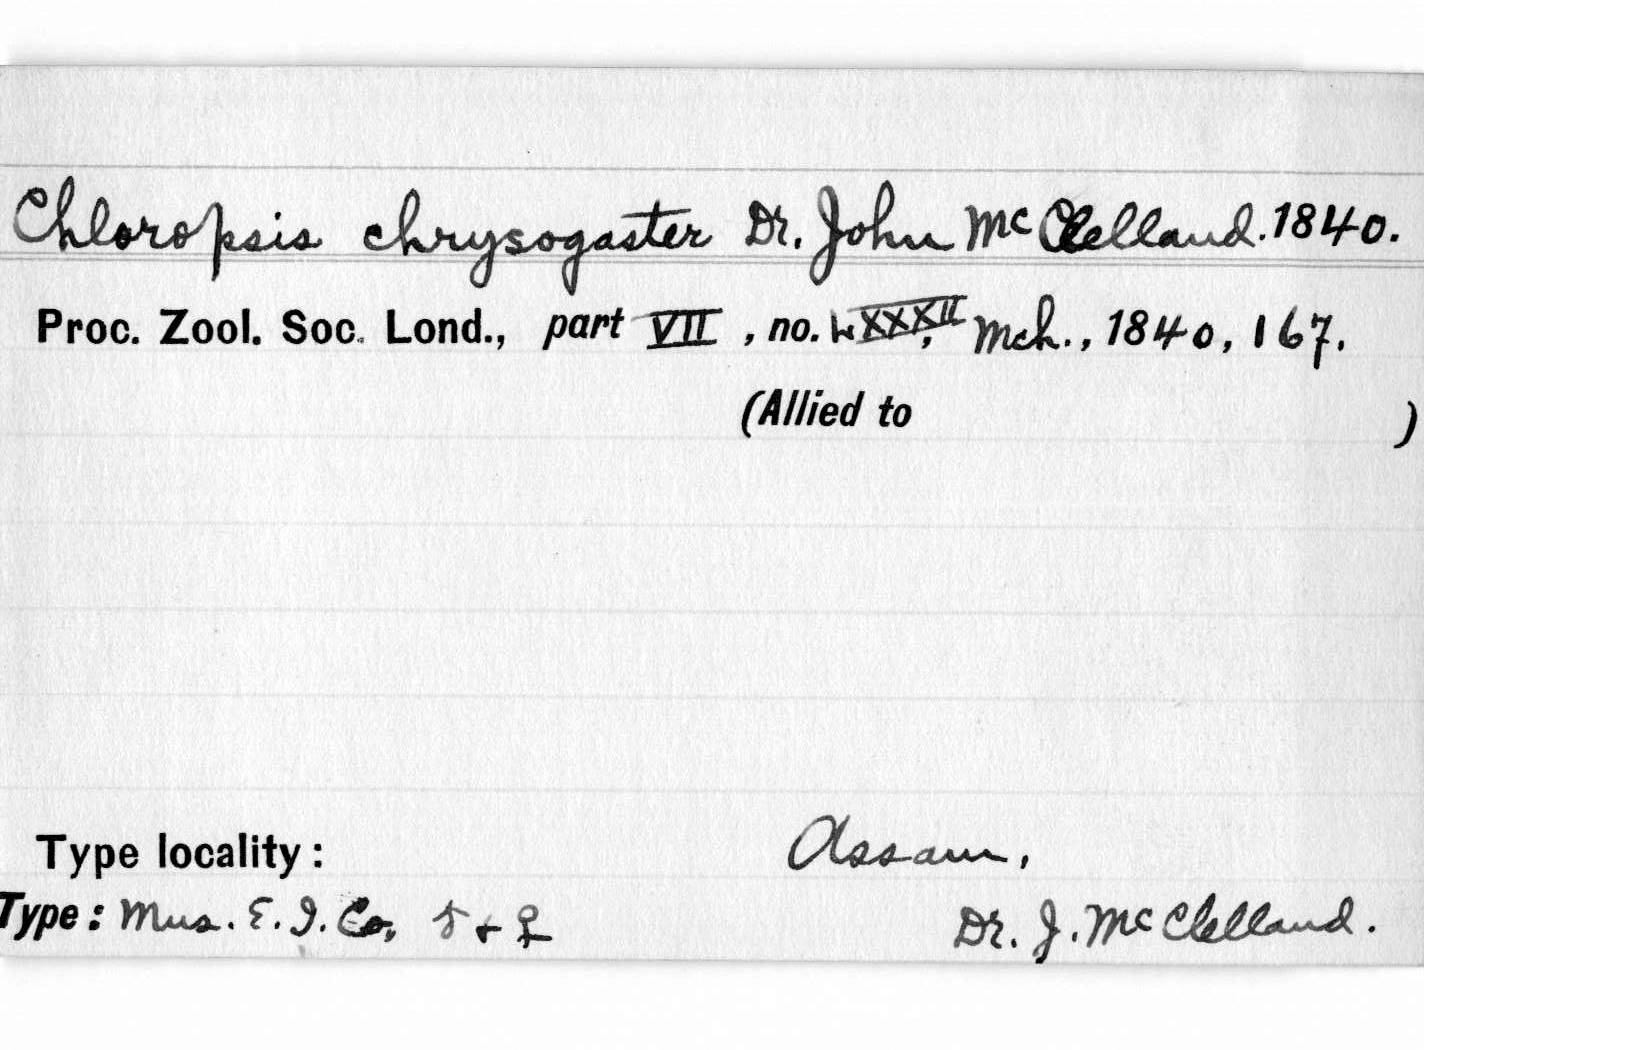 Chloropsis chrysogaster Dr. John McClelland. 1840.
Proc. Zool. Soc. Lond., part VII, no. LXXXII, Mch., 1840, 167.
(Allied to )
Type locality: Assam,
Type: Mus. E. I. Co, ♂ + ♀ Dr. J. McClelland.